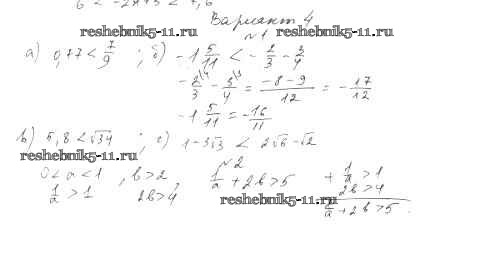 6 < -2x+3 < 7,6
Вариант 4
reshebnik5-11.ru reshebnik5-11.ru
№1
а) 0,77 < 7/9 ; б) -1 5/11 < -2/3 - 3/4
-2/3 - 3/4 = (-8-9)/12 = -17/12
-1 5/11 = -16/11
в) 5,8 < √34 ; г) 1-3√3 < 2√6-√2
reshebnik5-11.ru
№2
0 < a < 1 , b > 2 , 1/a + 2b > 5 + 1/a > 1
1/a > 1 2b > 4 2b > 4
reshebnik5-11.ru
1/a + 2b > 5.